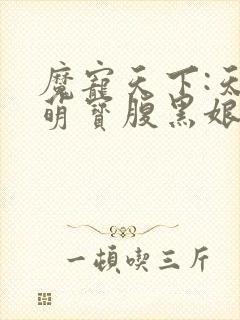 魔寵天下:天
萌寶腹黑娘
一頓喫三斤